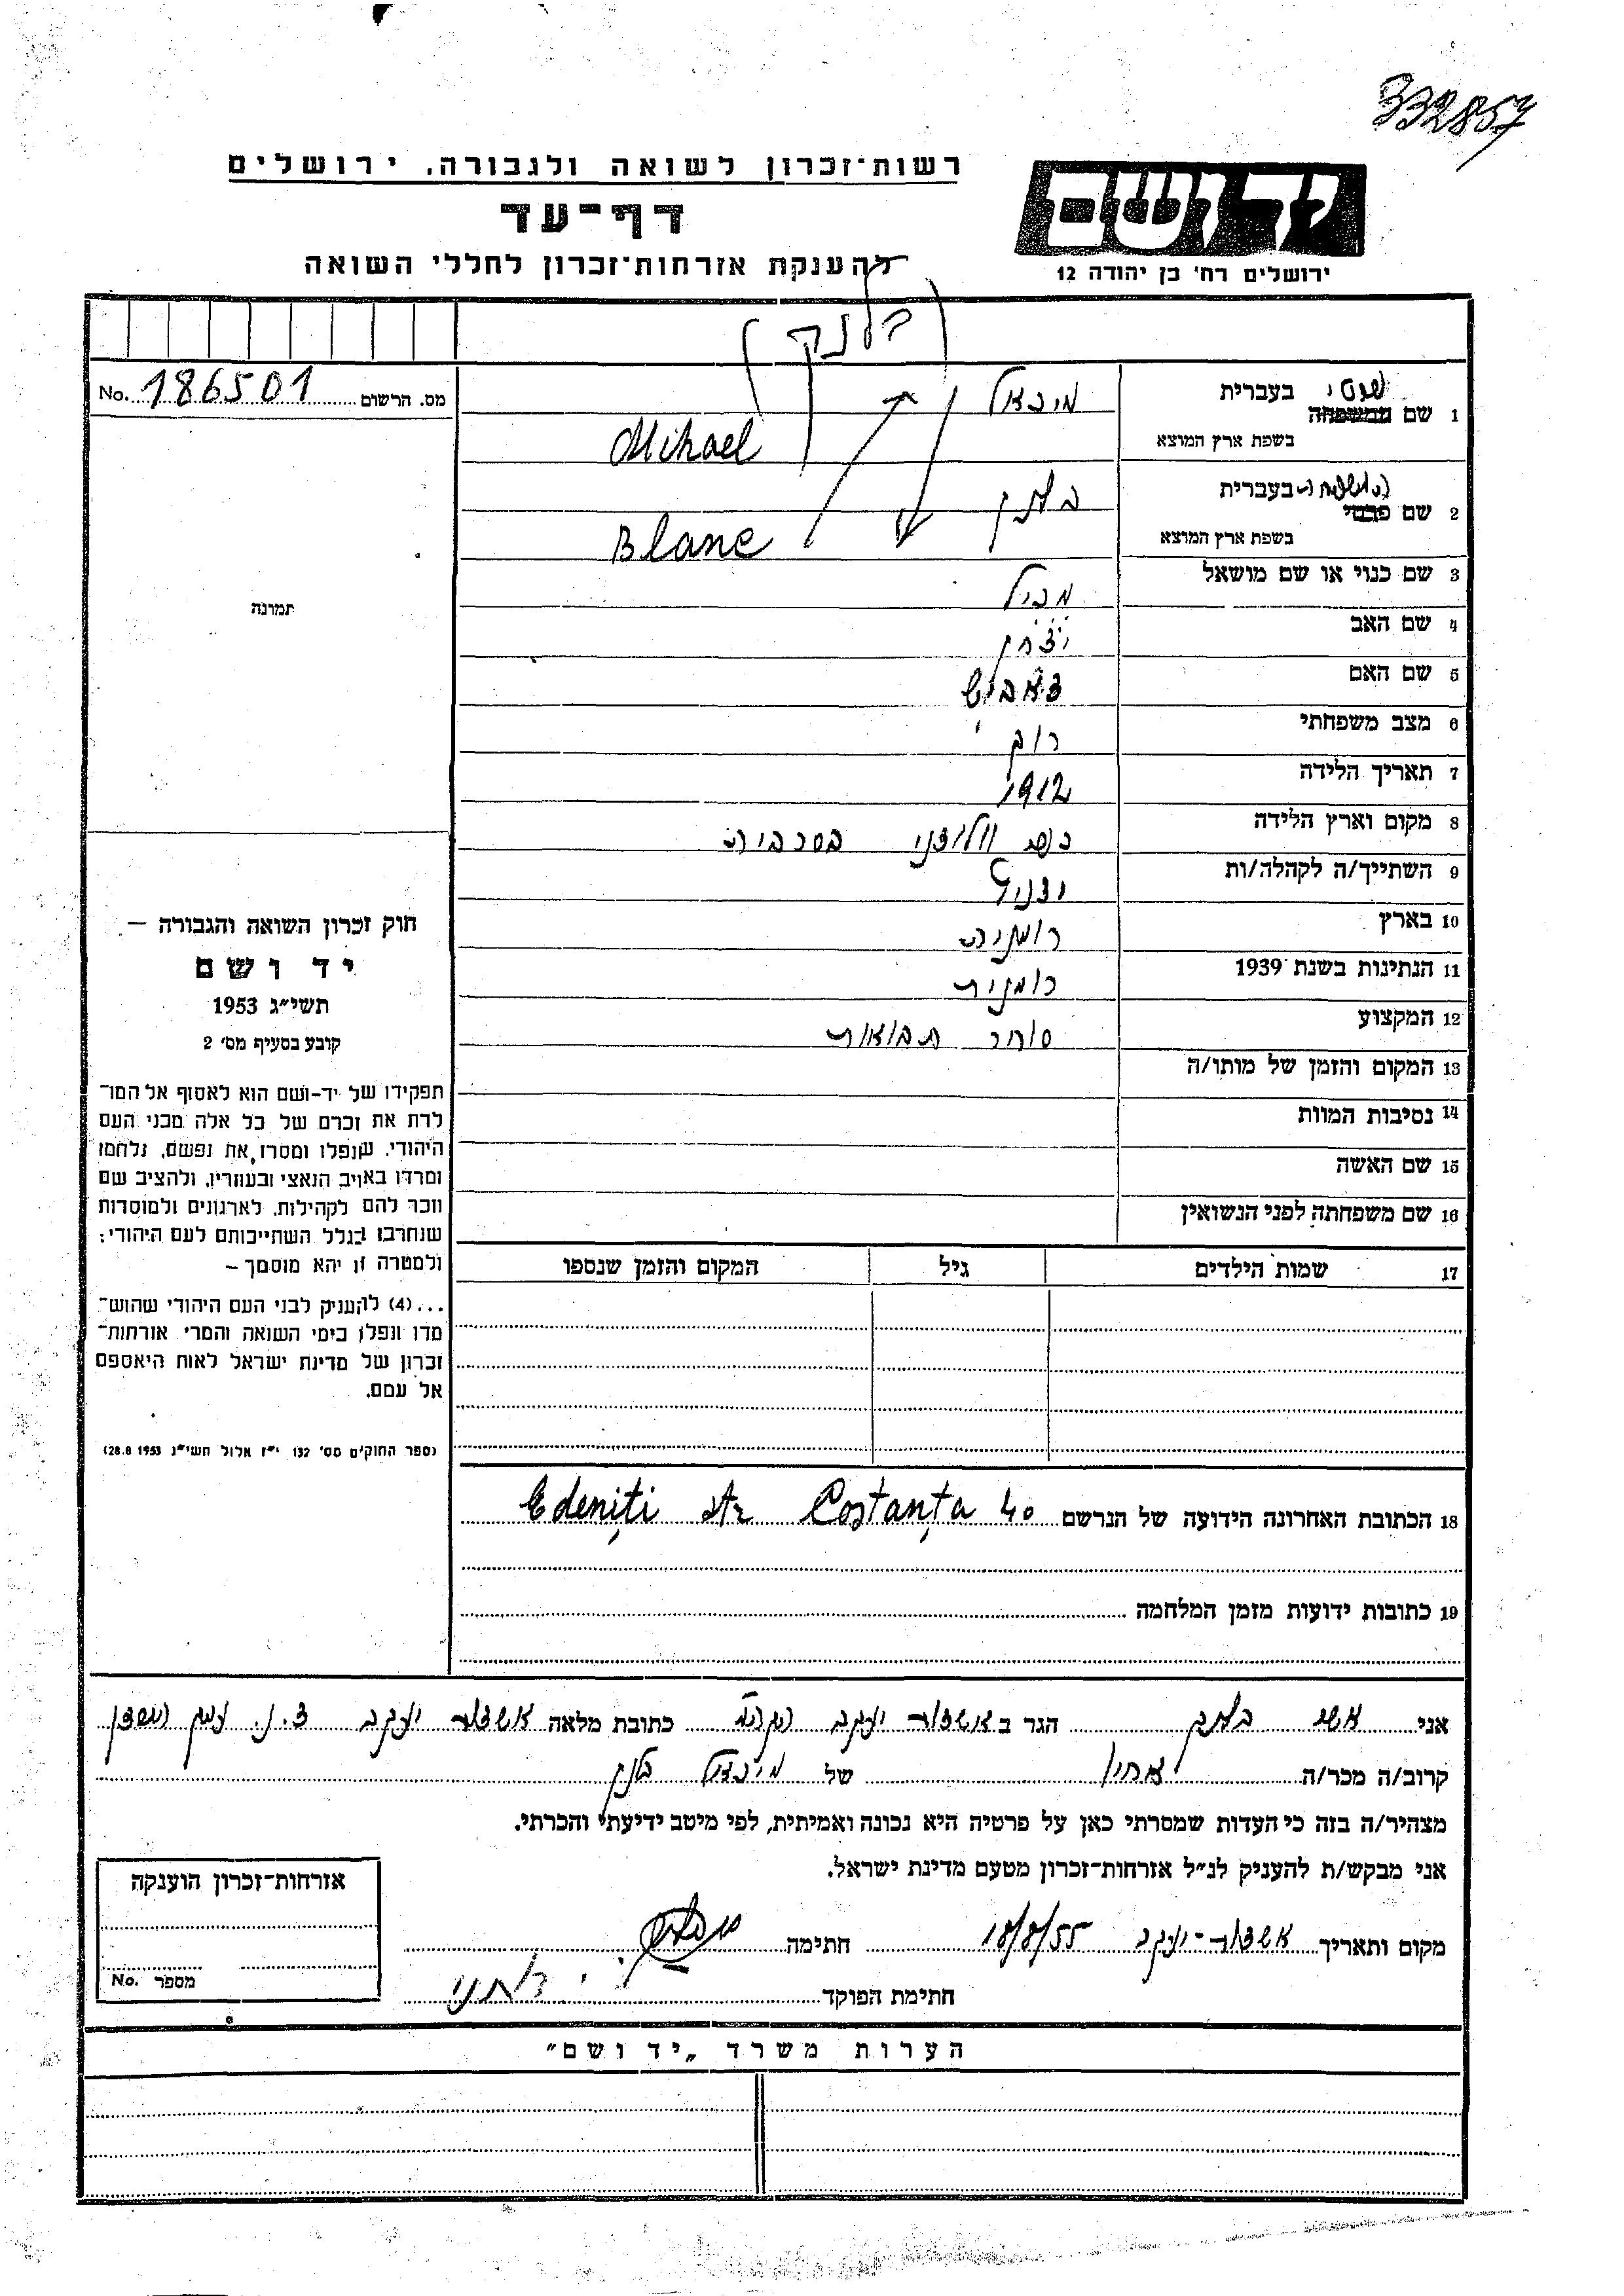 332857
רשות־זכרון לשואה ולגבורה, ירושלים
דף־עד
להענקת אזרחות־זכרון לחללי השואה
יד ושם
ירושלים רח' בן יהודה 12
בלנק
מס. הרשום 186501 No.
1 שם המשפחה פרטי בעברית מיכאל
בשפת ארץ המוצא Mihael
2 שם פרטי המשפחה בעברית בלנק
בשפת ארץ המוצא Blanc
3 שם כנוי או שם מושאל מכיל
4 שם האב יצחק
5 שם האם
6 מצב משפחתי רוק
7 תאריך הלידה 1912
8 מקום וארץ הלידה כפר בסרביה
9 השתייך/ה לקהלה/ות
10 בארץ רומניה
11 הנתינות בשנת 1939 רומנית
12 המקצוע סוחר תבואות
13 המקום והזמן של מותו/ה
14 נסיבות המוות
15 שם האשה
16 שם משפחתה לפני הנשואין
17 שמות הילדים גיל המקום והזמן שנספו
18 הכתובת האחרונה הידועה של הנרשם Edeniți str Costanța 40
19 כתובות ידועות מזמן המלחמה
תמונה
חוק זכרון השואה והגבורה –
יד ושם
תשי״ג 1953
קובע בסעיף מס' 2
תפקידו של יד-ושם הוא לאסוף אל המו־
לדת את זכרם של כל אלה מבני העם
היהודי, שנפלו ומסרו את נפשם, נלחמו
ומרדו באויב הנאצי ובעוזריו, ולהציב שם
וזכר להם לקהילות, לארגונים ולמוסדות
שנחרבו בגלל השתייכותם לעם היהודי;
ולמטרה זו יהא מוסמך –
...(4) להעניק לבני העם היהודי שהוש־
מדו ונפלו בימי השואה והמרי אזרחות־
זכרון של מדינת ישראל לאות היאספם
אל עמם.
(ספר החוקים מס' 132 י״ז אלול תשי״ג 28.8.1953)
אני אשר בלנק הגר ב אשדות יעקב כתובת מלאה אשדות יעקב ד.נ. עמק הירדן
קרוב/ה מכר/ה אחיו של מיכאל בלנק
מצהיר/ה בזה כי העדות שמסרתי כאן על פרטיה היא נכונה ואמיתית, לפי מיטב ידיעתי והכרתי.
אני מבקש/ת להעניק לנ״ל אזרחות-זכרון מטעם מדינת ישראל.
מקום ותאריך אשדות-יעקב 18/8/55 חתימה
חתימת הפוקד
אזרחות-זכרון הוענקה
מספר No.
הערות משרד „יד ושם"